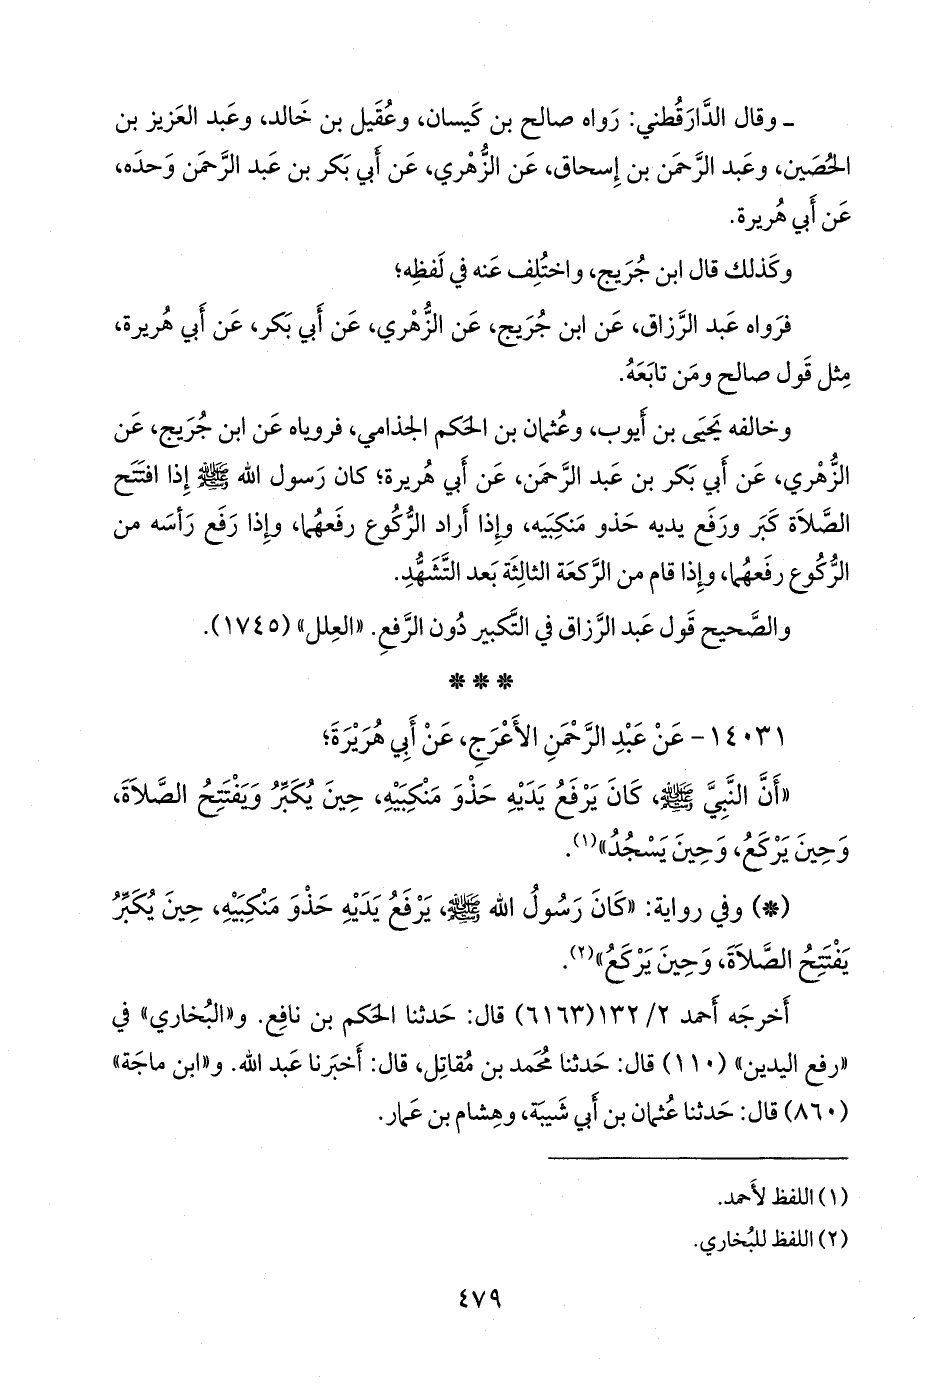 ـ وقال الدَّارَقُطني: رَواه صالح بن كَيسان، وعُقَيل بن خَالد، وعَبد العَزيز بن
الحُصَين، وعَبد الرَّحمَن بن إِسحاق، عَن الزُّهْري، عَن أَبي بَكر بن عَبد الرَّحمَن وَحدَه،
عَن أَبي هُريرة.
وكَذلك قال ابن جُرَيج، واختُلِف عَنه في لَفظِه؛
فرَواه عَبد الرَّزاق، عَن ابن جُرَيج، عَن الزُّهْري، عَن أَبي بَكر، عَن أَبي هُريرة،
مِثل قَول صالح ومَن تابَعَهُ.
وخالفه يَحيَى بن أَيوب، وعُثمان بن الحَكم الجذامي، فروياه عَن ابن جُرَيج، عَن
الزُّهْري، عَن أَبي بَكر بن عَبد الرَّحمَن، عَن أَبي هُريرة؛ كان رَسول الله ﷺ إِذا افتَتَح
الصَّلاَة كَبَر ورَفَع يديه حَذو مَنكِبَيه، وإِذا أَراد الرُّكُوع رفَعهُما، وإِذا رَفَع رَأسَه من
الرُّكُوع رفَعهُما، وإِذا قام من الرَّكعَة الثالِثَة بَعد التَّشَهُّدِ.
والصَّحيح قَول عَبد الرَّزاق في التَّكبير دُون الرَّفعِ. «العِلل» (١٧٤٥).
* * *
١٤٠٣١- عَنْ عَبْدِ الرَّحْمَنِ الأَعْرَجِ، عَنْ أَبِي هُرَيْرَةَ؛
«أَنَّ النَّبِيَّ ﷺ، كَانَ يَرْفَعُ يَدَيْهِ حَذْوَ مَنْكِبَيْهِ، حِينَ يُكَبِّرُ وَيَفْتَتِحُ الصَّلاَةَ،
وَحِينَ يَرْكَعُ، وَحِينَ يَسْجُدُ»(١).
(*) وفي رواية: «كَانَ رَسُولُ الله ﷺ، يَرْفَعُ يَدَيْهِ حَذْوَ مَنْكِبَيْهِ، حِينَ يُكَبِّرُ
يَفْتَتِحُ الصَّلاَةَ، وَحِينَ يَرْكَعُ»(٢).
أَخرجَه أَحمد ٢/ ١٣٢(٦١٦٣) قال: حَدثنا الحَكم بن نافِع. و«البُخاري» في
«رفع اليدين» (١١٠) قال: حَدثنا مُحَمد بن مُقاتِل، قال: أَخبَرنا عَبد الله. و«ابن ماجة»
(٨٦٠) قال: حَدثنا عُثمان بن أَبي شَيبَة، وهِشام بن عَمار.
(١) اللفظ لأَحمد.
(٢) اللفظ للبُخاري.
٤٧٩